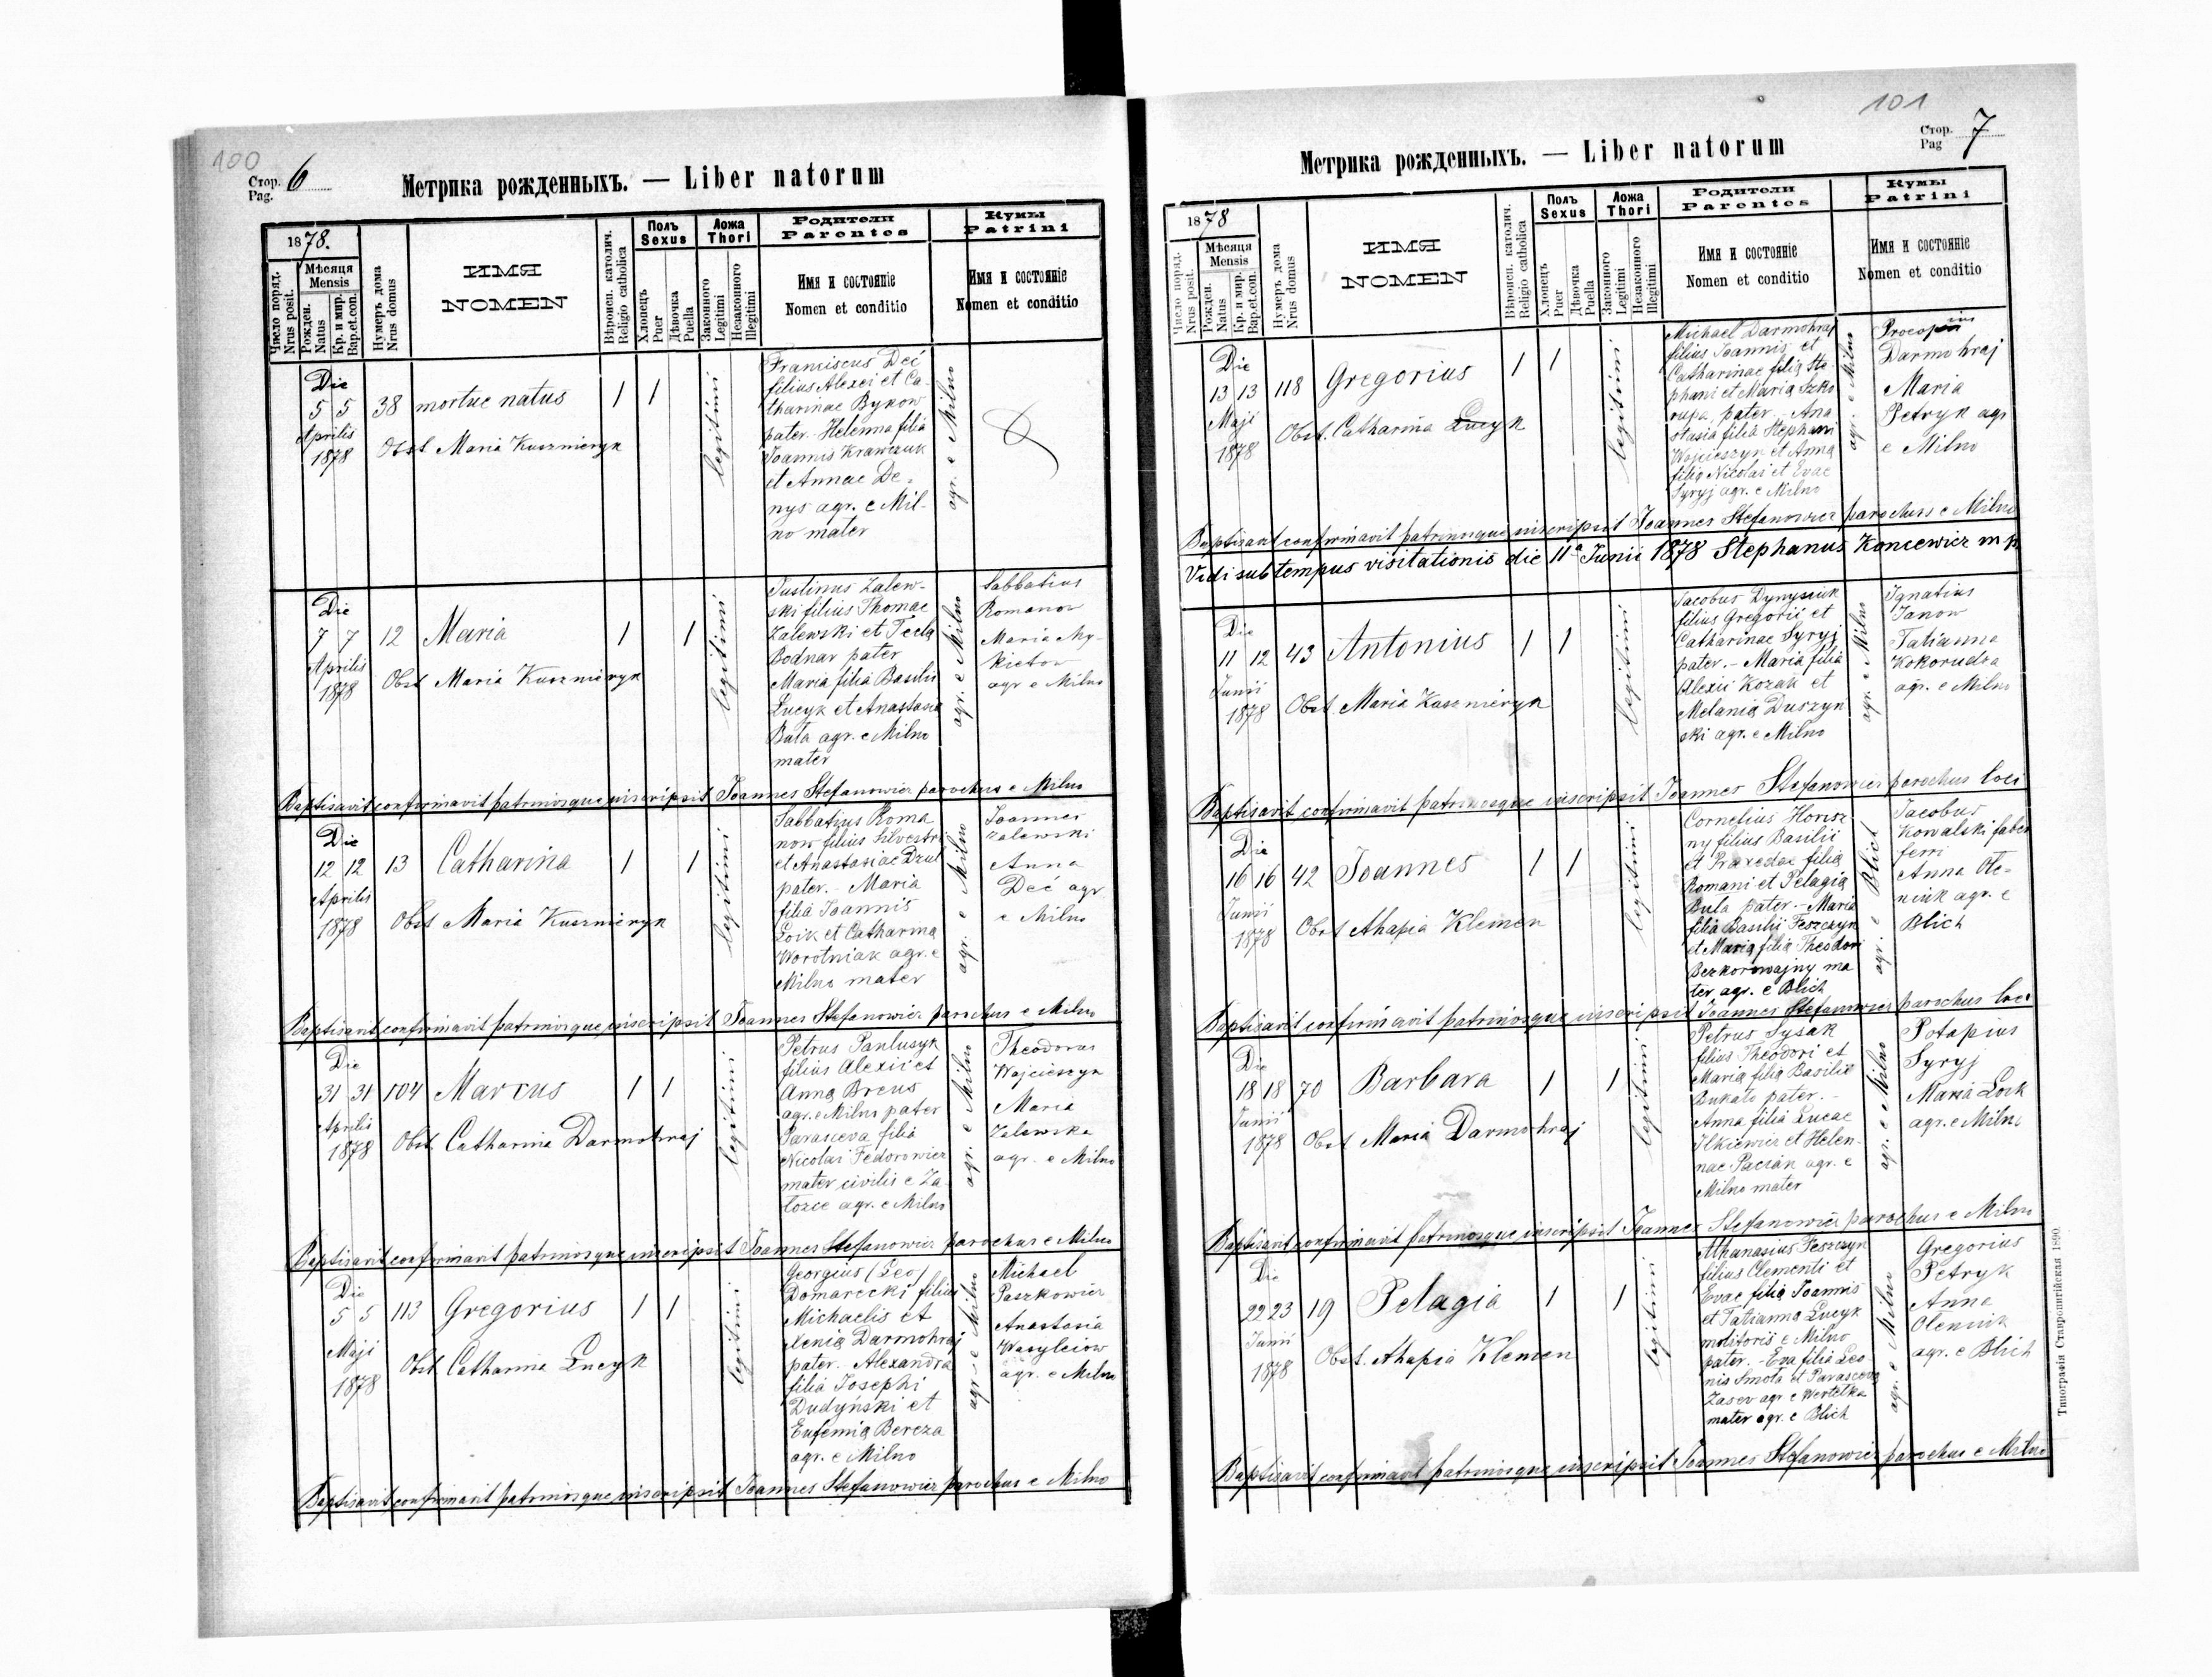 100
Стор. 6
Pag.
Метрика рожденныхъ. — Liber natorum
1878.
Число поряд.
Nrus posit.
Мѣсяця
Mensis
Рожден.
Natus
Кр. и мир.
Bap.et.con.
Нумеръ дома
Nrus domus
ИМЯ
NOMEN
Вѣроисп. католич.
Religio catholica
Полъ
Sexus
Хлопецъ
Puer
Дѣвочка
Puella
Ложа
Thori
Законного
Legitimi
Незаконного
Illegitimi
Родители
Parentes
Имя и состояніе
Nomen et conditio
Кумы
Patrini
Имя и состояніе
Nomen et conditio
Die
5 5 38 mortue natus 1 1
Aprilis
1878
Obst Maria Kuszmieryk
legitimi
Franciscus Deć
filius Alexei et Ca-
tharinae Bykow
pater. Helenna filia
Joannis Krawczuk
et Annae De-
nys agr. e Mil-
no mater
agr. e Milno
Die
7 7 12 Maria 1 1
Aprilis
1878
Obst Maria Kuszmieryk
legitimi
Justinus Zalew-
ski filius Thomae
Zalewski et Tecla
Bodnar pater
Maria filia Basilii
Lucyk et Anastasia
Buta agr. e Milno
mater
agr. e Milno
Sabbatius
Romanow
Maria My-
kietow
agr e Milno
Baptisavit confirmavit patrinosque inscripsit Joannes Stefanowicz parochus e Milno
Die
12 12 13 Catharina 1 1
Aprilis
1878
Obst Maria Kuszmieryk
legitimi
Sabbatius Roma
now filius Silvestri
et Anastasiae Dzul
pater. - Maria
filia Joannis
Loik et Catharina
Worotniak agr. e
Milno mater
agr. e Milno
Joannes
Zalewski
Anna
Deć agr
e Milno
Baptisavit confirmavit patrinosque inscripsit Joannes Stefanowicz parochus e Milno
Die
31 31 104 Marcus 1 1
Aprilis
1878
Obst. Catharina Darmohraj
legitimi
Petrus Panlusyk
filius Alexii et
Anna Breus
agr. e Milno pater
Parasceva filia
Nicolai Fedorowicz
mater civilis e Za
lozce agr. e Milno
agr. e Milno
Theodorus
Wojcieszyn
Maria
Zalewska
agr. e Milno
Baptisavit confirmavit patrinosque inscripsit Joannes Stefanowicz parochus e Milno
Die
5 5 113 Gregorius 1 1
Maji
1878
Obst. Catharina Lucyk
legitimi
Georgius (Jeo)
Domarecki filius
Michaelis et
Xenia Darmohraj
pater. Alexandra
filia Josephi
Dudyński et
Eufemia Bereza
agr. e Milno
agr. e Milno
Michael
Paszkowicz
Anastasia
Wasyleiow
agr. e Milno
Baptisavit confirmavit patrinosque inscripsit Joannes Stefanowicz parochus e Milno
101
Стор. 7
Pag
Метрика рожденныхъ. — Liber natorum
1878
Число поряд.
Nrus posit.
Мѣсяця
Mensis
Рожден.
Natus
Кр. и мир.
Bap.et.con.
Нумеръ дома
Nrus domus
ИМЯ
NOMEN
Вѣроисп. католич.
Religio catholica
Полъ
Sexus
Хлопецъ
Puer
Дѣвочка
Puella
Ложа
Thori
Законного
Legitimi
Незаконного
Illegitimi
Родители
Parentes
Имя и состояніе
Nomen et conditio
Кумы
Patrini
Имя и состояніе
Nomen et conditio
Die
13 13 118 Gregorius 1 1
Maji
1878
Obst. Catharina Lucyk
legitimi
Michael Darmohraj
filius Joannis et
Catharinae filia Ste
phani et Maria Szko
rupa pater. Ana
stasia filia Stephani
Wojcieszyn et Anna
filia Nicolai et Evae
Syryj agr. e Milno
agr. e Milno
Procopius
Darmohraj
Maria
Petryk agr
e Milno
Baptisavit confirmavit patrinosque inscripsit Joannes Stefanowicz parochus e Milno
Vidi sub tempus visitationis die 11a Junii 1878 Stephanus Koncewicz mp
Die
11 12 43 Antonius 1 1
Junii
1878
Obst. Maria Kuszmieryk
legitimi
Jacobus Dynysiuk
filius Gregorii et
Catharinae Syryj
pater. - Maria filia
Alexii Kozak et
Melania Duszyn
ski agr. e Milno
agr. e Milno
Ignatius
Janow
Tatianna
Kokorudza
agr. e Milno
Baptisavit confirmavit patrinosque inscripsit Joannes Stefanowicz parochus loci
Die
16 16 42 Joannes 1 1
Junii
1878
Obst Ahapia Klemen
legitimi
Cornelius Horisz
ny filius Basilii
et Praxedae filia
Romani et Pelagia
Buta pater. - Maria
filia Basilii Feszczyn
et Maria filia Theodori
Bezkorowajny ma
ter agr. e Blich
agr. e Blich
Jacobus
Kowalski faber
ferri
Anna Ole-
niuk agr. e
Blich
Baptisavit confirmavit patrinosque inscripsit Joannes Stefanowicz parochus loci
Die
18 18 70 Barbara 1 1
Junii
1878
Obst Maria Darmohraj
legitimi
Petrus Sysak
filius Theodori et
Maria filia Basilii
Bukato pater. -
Anna filia Lucae
Ilkiewicz et Helen-
nae Pacian agr. e
Milno mater
agr. e Milno
Potapius
Syryj
Maria Loik
agr. e Milno
Baptisavit confirmavit patrinosque inscripsit Joannes Stefanowicz parochus e Milno
Die
22 23 19 Pelagia 1 1
Junii
1878
Obst. Ahapia Klemen
legitimi
Athanasius Feszczyn
filius Clementi et
Evae filia Joannis
et Tatianna Lucyk
molitoris e Milno
pater. - Eva filia Leo
nis Smota et Parasceva
Zasev agr e Wertelka
mater agr. e Blich
agr. e Milno
Gregorius
Petryk
Anna
Oleniuk
agr. e Blich
Baptisavit confirmavit patrinosque inscripsit Joannes Stefanowicz parochus e Milno
Типографія Ставропигійская 1890.